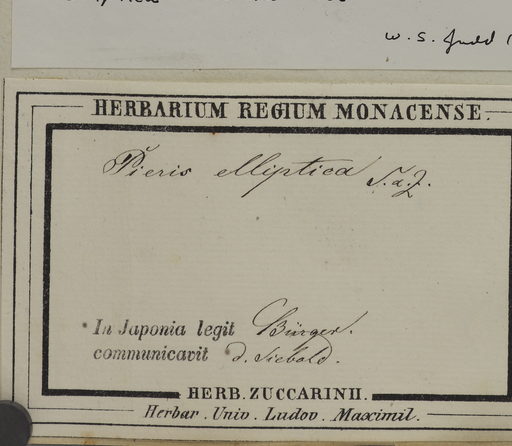 W. S. Judd
HERBARIUM REGIUM MONACENSE.
Pieris elliptica S. & Z.
In Japonia legit Bürger.
communicavit d. Siebold.
HERB. ZUCCARINII.
Herbar. Univ. Ludov. Maximil.